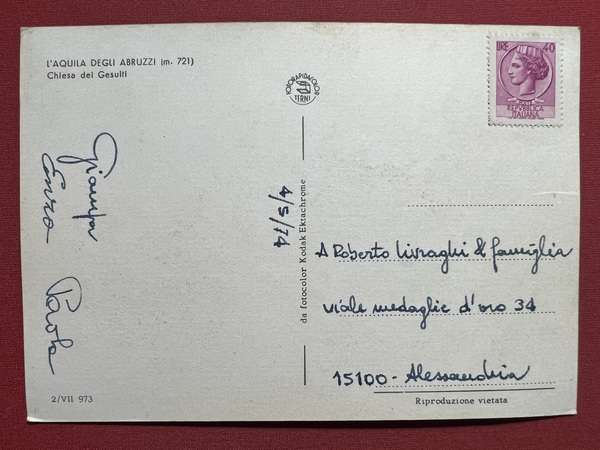 L'AQUILA DEGLI ABRUZZI (m. 721)
Chiesa dei Gesuiti
Enzo
Paola
2/VII 973
FOTORAPIDACOLOR
TERNI
da fotocolor Kodak Ektachrome
4/5/74
LIRE 40
REPVBBLICA
ITALIANA
A Roberto Livraghi & famiglia
viale medaglie d'oro 34
15100 - Alessandria
Riproduzione vietata